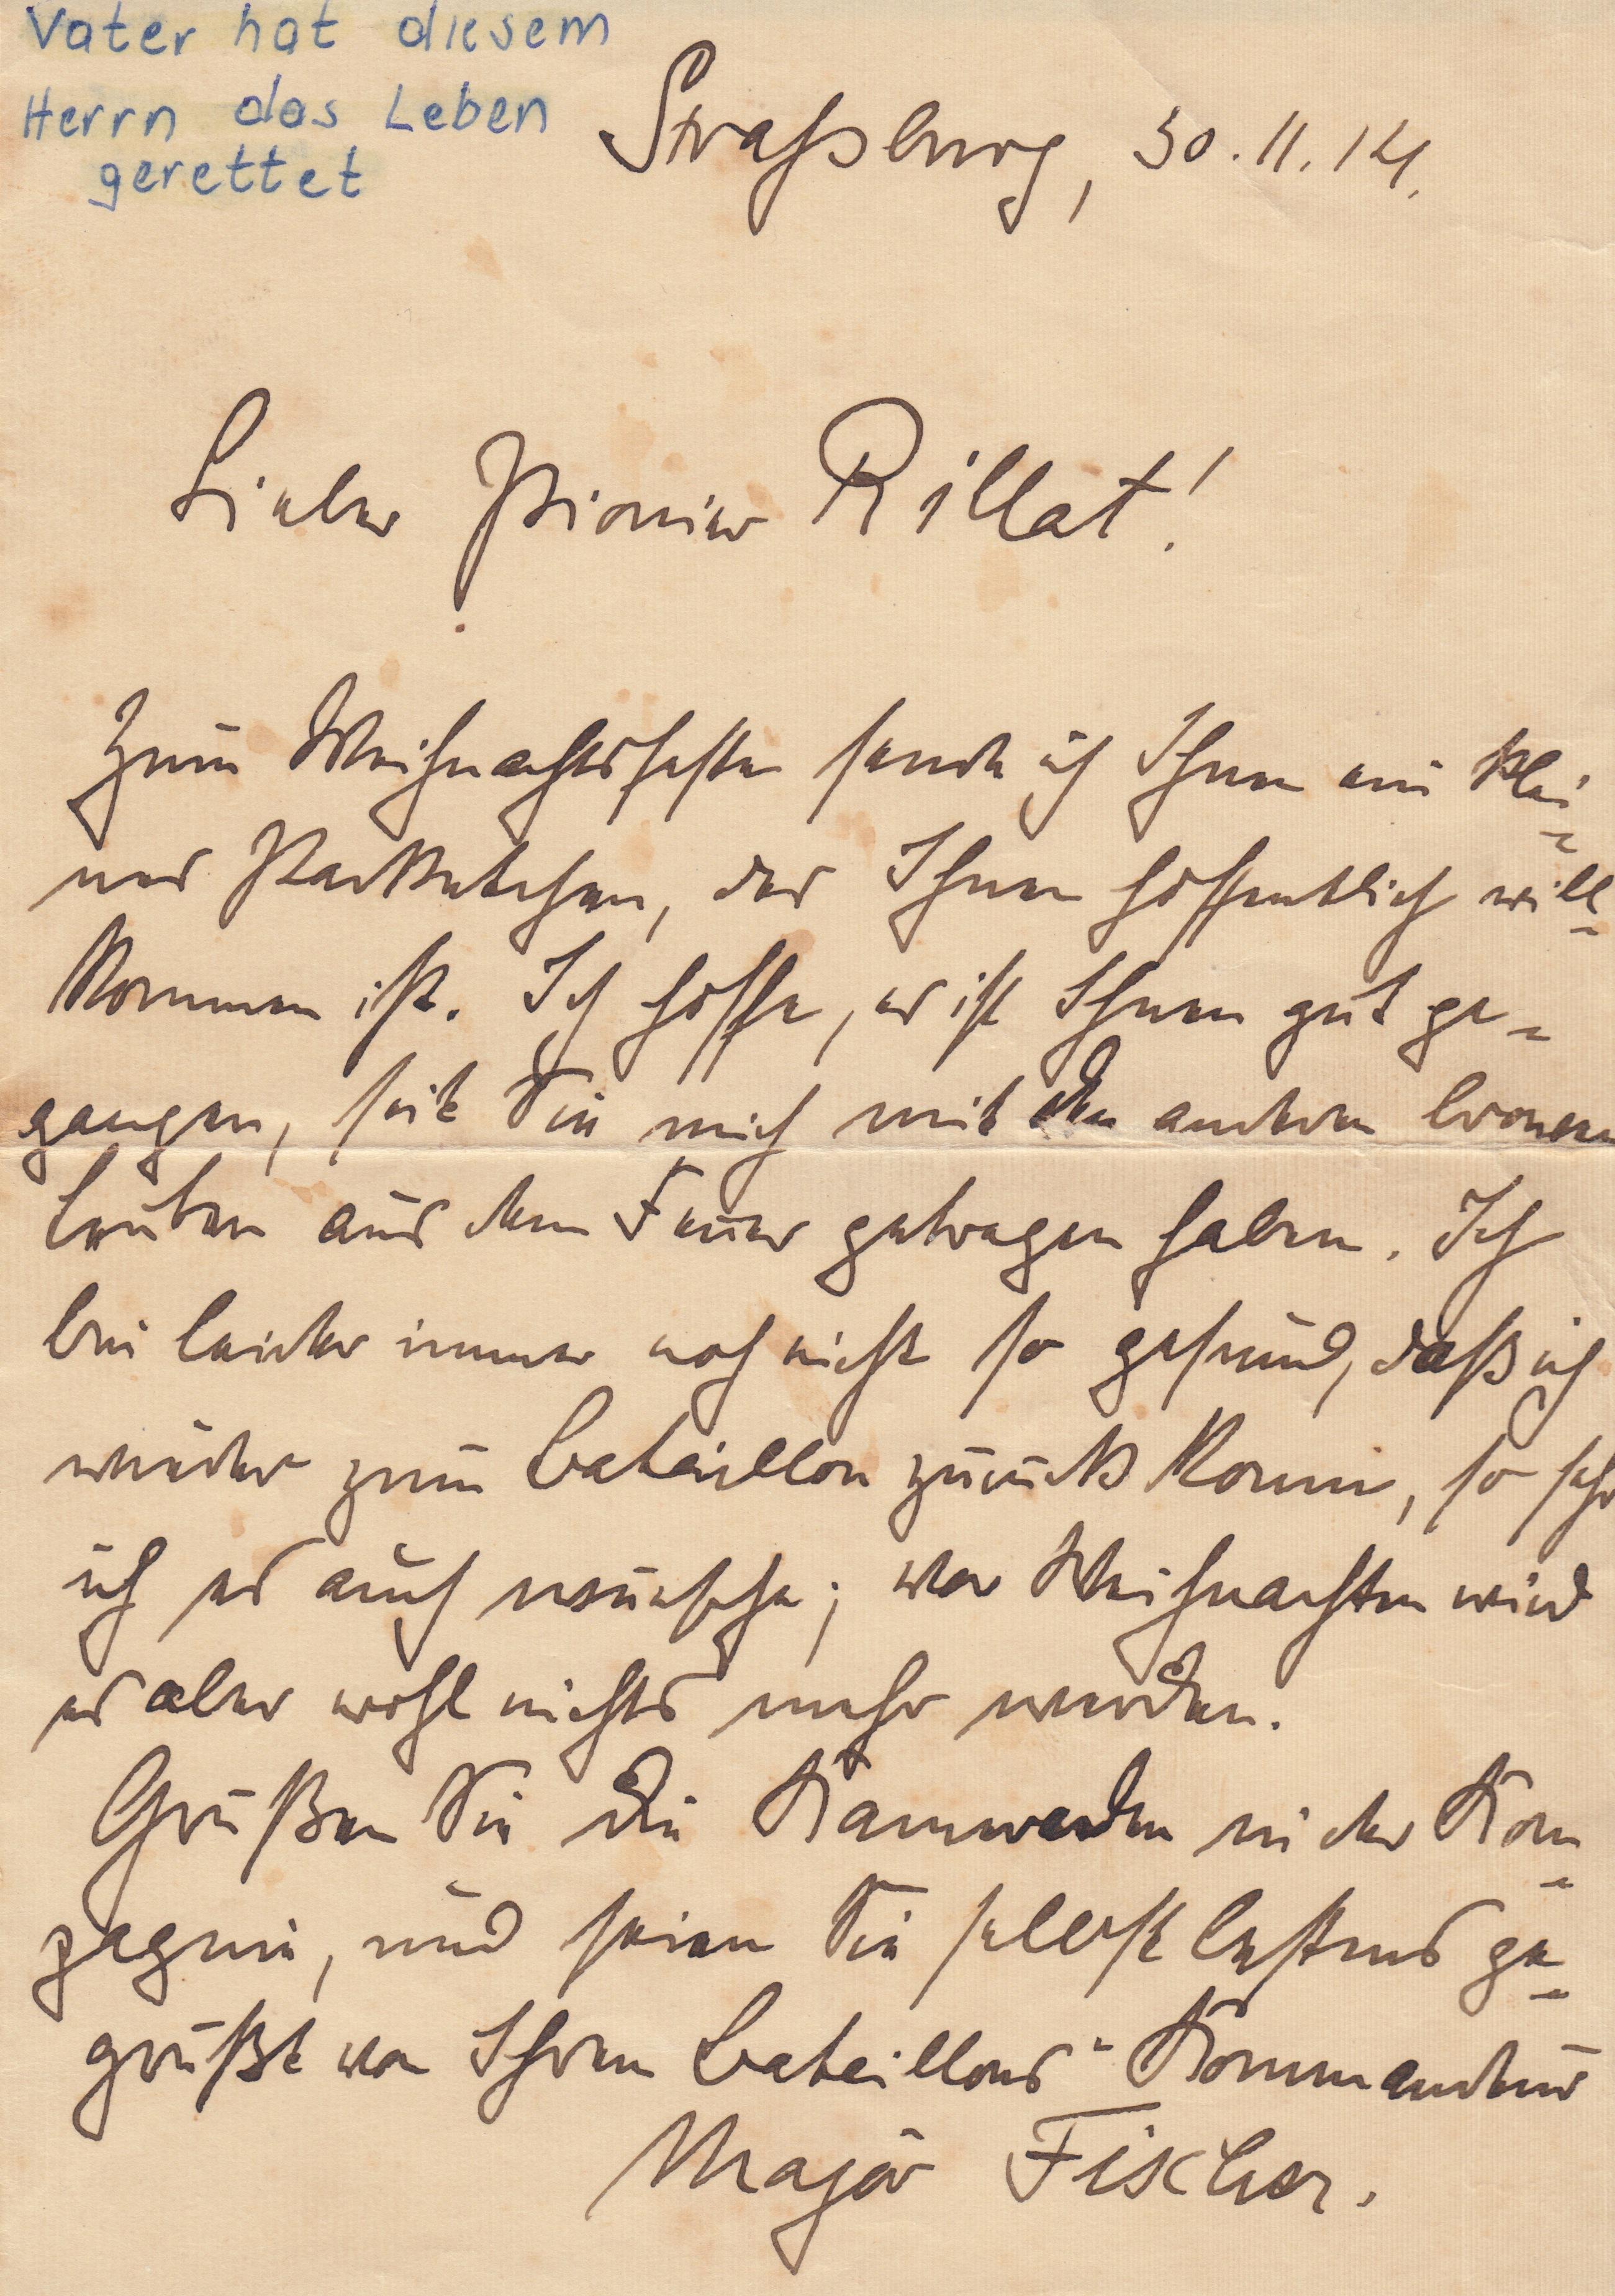 Vater hat diesem
Herrn das Leben
gerettet
Straßburg, 30.11.14.
Lieber Pionier Rillat!
Zum Weihnachtsfeste sende ich Ihnen ein klei-
nes Packetchen, das Ihnen hoffentlich will-
kommen ist. Ich hoffe, es ist Ihnen gut ge-
gangen, seit Sie mich mit den andern braven
Leuten aus dem Feuer getragen haben. Ich
bin leider immer noch nicht so gesund, daß ich
wieder zum Bataillon zurück kann, so sehr
ich es auch wünsche; vor Weihnachten wird
es aber wohl nichts mehr werden.
Grüßen Sie die Kameraden in der Kom-
pagnie, und seien Sie selbst bestens ge-
grüßt von Ihrem Bataillons-Kommandeur
Major Fischer.